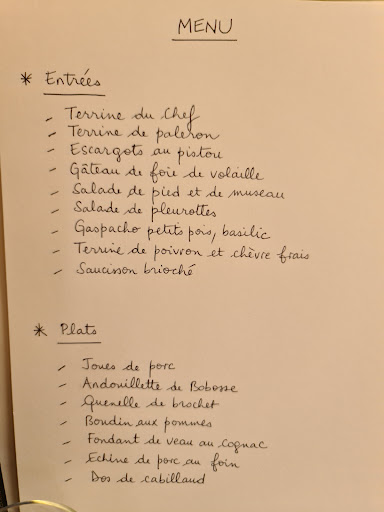 MENU
* Entrées
- Terrine du Chef
- Terrine de paleron
- Escargots au pistou
- Gâteau de foie de volaille
- Salade de pied et de museau
- Salade de pleurottes
- Gaspacho petits pois, basilic
- Terrine de poivron et chèvre frais
- Saucisson brioché
* Plats
- Joues de porc
- Andouillette de Bobosse
- Quenelle de brochet
- Boudin aux pommes
- Fondant de veau au cognac
- Echine de porc au foin
- Dos de cabillaud